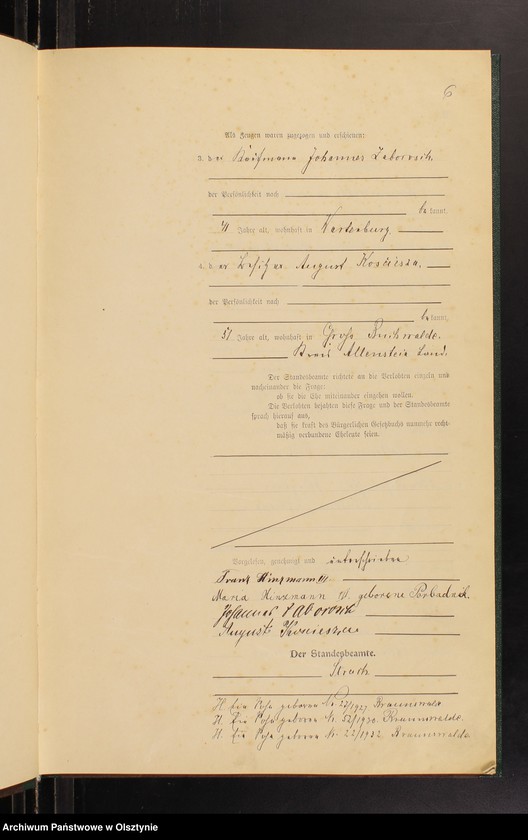 6
Als Zeugen waren zugezogen und erschienen:
3. der Kaufmann Johannes Zaborosch
der Persönlichkeit nach
be kannt,
41 Jahre alt, wohnhaft in Wartenburg.
4. der Besitzer August Kosciesza,
der Persönlichkeit nach
be kannt,
51 Jahre alt, wohnhaft in Groß Buchwalde,
Kreis Allenstein Land.
Der Standesbeamte richtete an die Verlobten einzeln und
nacheinander die Frage:
ob sie die Ehe miteinander eingehen wollen.
Die Verlobten bejahten diese Frage und der Standesbeamte
sprach hierauf aus,
daß sie kraft des Bürgerlichen Gesetzbuchs nunmehr recht-
mäßig verbundene Eheleute seien.
Vorgelesen, genehmigt und unterschrieben
Franz Hinzmann
Maria Hinzmann geborene
Johannes Zaborosch
August Kosciesza
Der Standesbeamte.
H. Ein Sohn geboren Nr. 1927 Braunswalde
H. Ein Sohn geboren Nr. 52/1930. Braunswalde.
H. Ein Sohn geboren Nr. 22/1932 Braunswalde.
Archiwum Państwowe w Olsztynie